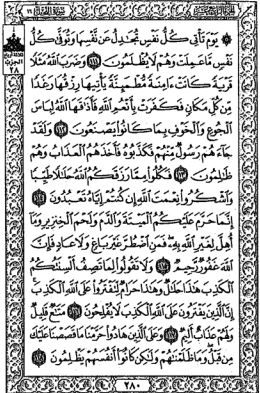 ۞ يَوْمَ تَأْتِي كُلُّ نَفْسٍ تُجَٰدِلُ عَن نَّفْسِهَا وَتُوَفَّىٰ كُلُّ
نَفْسٍ مَّا عَمِلَتْ وَهُمْ لَا يُظْلَمُونَ ١١١ وَضَرَبَ ٱللَّهُ مَثَلًا
قَرْيَةً كَانَتْ ءَامِنَةً مُّطْمَئِنَّةً يَأْتِيهَا رِزْقُهَا رَغَدًا
مِّن كُلِّ مَكَانٍ فَكَفَرَتْ بِأَنْعُمِ ٱللَّهِ فَأَذَٰقَهَا ٱللَّهُ لِبَاسَ
ٱلْجُوعِ وَٱلْخَوْفِ بِمَا كَانُوا۟ يَصْنَعُونَ ١١٢ وَلَقَدْ
جَآءَهُمْ رَسُولٌ مِّنْهُمْ فَكَذَّبُوهُ فَأَخَذَهُمُ ٱلْعَذَابُ وَهُمْ
ظَٰلِمُونَ ١١٣ فَكُلُوا۟ مِمَّا رَزَقَكُمُ ٱللَّهُ حَلَٰلًا طَيِّبًا
وَٱشْكُرُوا۟ نِعْمَتَ ٱللَّهِ إِن كُنتُمْ إِيَّاهُ تَعْبُدُونَ ١١٤
إِنَّمَا حَرَّمَ عَلَيْكُمُ ٱلْمَيْتَةَ وَٱلدَّمَ وَلَحْمَ ٱلْخِنزِيرِ وَمَآ
أُهِلَّ لِغَيْرِ ٱللَّهِ بِهِۦ فَمَنِ ٱضْطُرَّ غَيْرَ بَاغٍ وَلَا عَادٍ فَإِنَّ
ٱللَّهَ غَفُورٌ رَّحِيمٌ ١١٥ وَلَا تَقُولُوا۟ لِمَا تَصِفُ أَلْسِنَتُكُمُ
ٱلْكَذِبَ هَٰذَا حَلَٰلٌ وَهَٰذَا حَرَامٌ لِّتَفْتَرُوا۟ عَلَى ٱللَّهِ ٱلْكَذِبَ
إِنَّ ٱلَّذِينَ يَفْتَرُونَ عَلَى ٱللَّهِ ٱلْكَذِبَ لَا يُفْلِحُونَ ١١٦ مَتَٰعٌ قَلِيلٌ
وَلَهُمْ عَذَابٌ أَلِيمٌ ١١٧ وَعَلَى ٱلَّذِينَ هَادُوا۟ حَرَّمْنَا مَا قَصَصْنَا عَلَيْكَ
مِن قَبْلُ وَمَا ظَلَمْنَٰهُمْ وَلَٰكِن كَانُوٓا۟ أَنفُسَهُمْ يَظْلِمُونَ ١١٨
٢٨٠